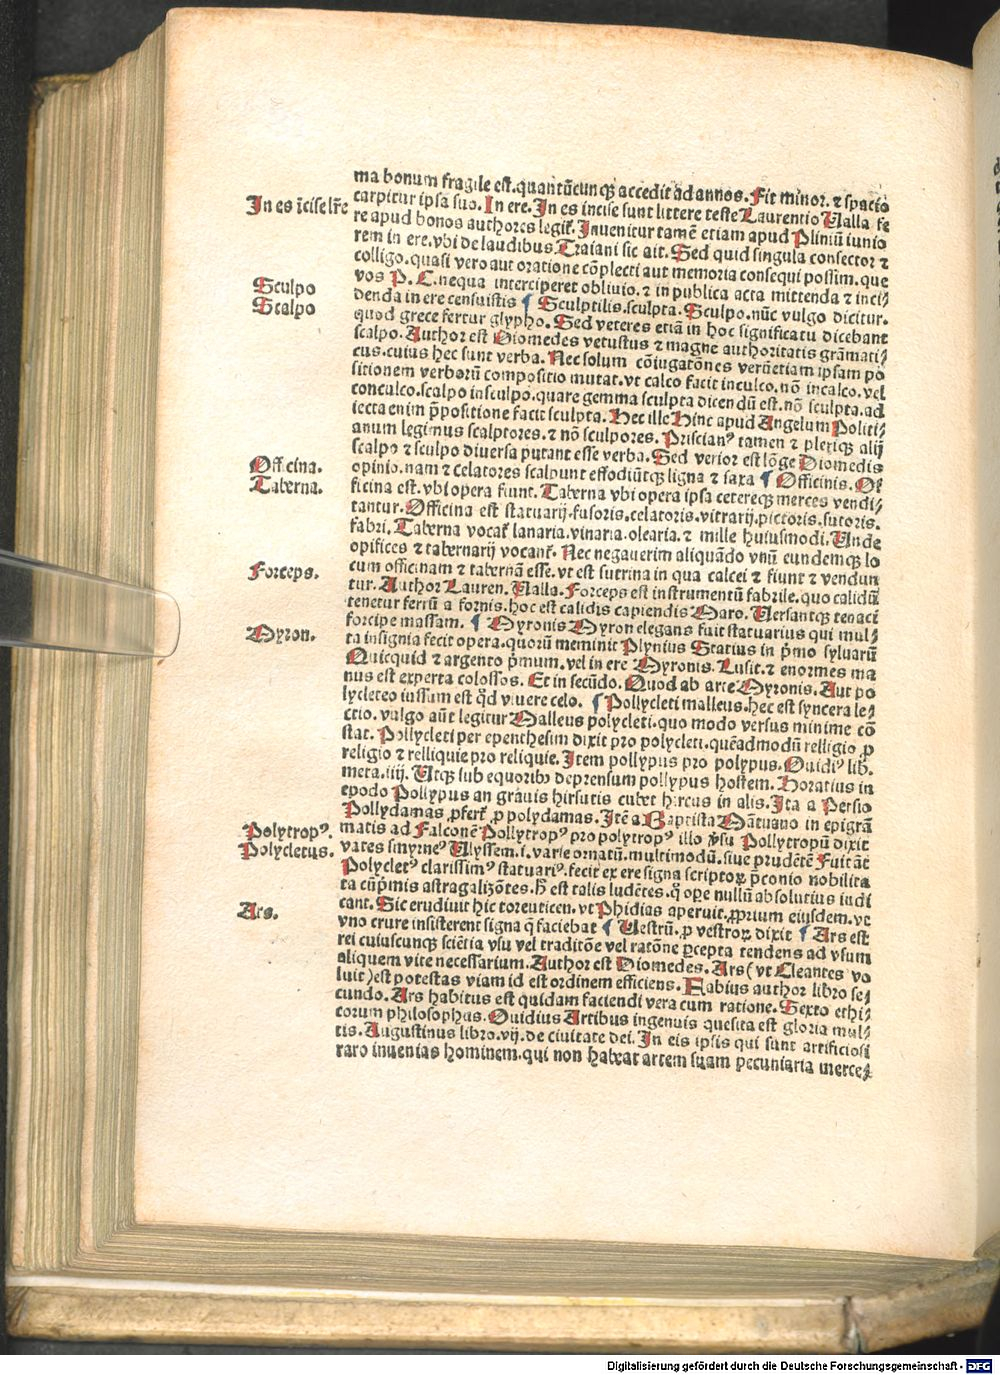 ma bonum fragile est. quantũcunqꝫ accedit ad annos. Fit minor. ⁊ spacio
carpitur ipsa suo. In ere. In es incise sunt littere teste Laurentio Valla fe
In es ĩcise lr̃e
re apud bonos authores legit᷑. Inuenitur tamẽ etiam apud Pliniũ iunio
rem in ere. vbi de laudibus Traiani sic ait. Sed quid singula consector ⁊
colligo. quasi vero aut oratione cõplecti aut memoria consequi possim. que
vos P. C. nequa interciperet obliuio. ⁊ in publica acta mittenda ⁊ inci/
Sculpo
denda in ere censuistis ¶ Sculptilis. sculpta. Sculpo. nũc vulgo dicitur.
Scalpo
quod grece fertur glypho. Sed veteres etiã in hoc significatu dicebant
scalpo. Author est Diomedes vetustus ⁊ magne authoritatis grãmati/
cus. cuius hec sunt verba. Nec solum cõiugatões verũetiam ipsam po
sitionem verborũ compositio mutat. vt calco facit inculco. nõ incalco. vel
conculco. scalpo insculpo. quare gemma sculpta dicendũ est. nõ sculpta. ad
iecta enim p̃positione facit sculpta. Hec ille Hinc apud Angelum Politi/
anum legimus scalptores. ⁊ nõ sculpores. Priscianꝰ tamen ⁊ pleriqꝫ alij
scalpo ⁊ sculpo diuersa putant esse verba. Sed verior est lõge Diomedis
Officina.
opinio. nam ⁊ celatores scalpunt effodiũtqꝫ ligna ⁊ saxa ¶ Officinis. Of
Taberna.
ficina est. vbi opera fiunt. Taberna vbi opera ipsa cetereqꝫ merces vendi/
tantur. Officina est statuarij. fusoris. celatoris. vitrarij. pictoris. sutoris.
fabri. Taberna vocat᷑ lanaria. vinaria. olearia. ⁊ mille huiusmodi. Unde
opifices ⁊ tabernarij vocant᷑. Nec negauerim aliquãdo vnũ eundemqꝫ lo
cum officinam ⁊ tabernã esse. vt est sutrina in qua calcei ⁊ fiunt ⁊ vendun
Forceps.
tur. Author Lauren. Valla. Forceps est instrumentũ fabrile. quo calidũ
tenetur ferrũ a fornis. hoc est calidis capiendis Maro. Versantqꝫ tenaci
forcipe massam. ¶ Myronis Myron elegans fuit statuarius qui mul/
Myron.
ta insignia fecit opera. quorũ meminit Plynius Statius in p̃mo syluarũ
Quicquid ⁊ argento p̃mum. vel in ere Myronis. Lusit. ⁊ enormes ma
nus est experta colossos. Et in secũdo. Quod ab arte Myronis. Aut po
lycleteo iussum est qd̃ viuere celo. ¶ Pollycleti malleus. hec est syncera le/
ctio. vulgo aũt legitur Malleus polycleti. quo modo versus minime cõ
stat. Pollycleti per epenthesim dixit pro polycleti. quẽadmodũ relligio ꝓ
religio ⁊ relliquie pro reliquie. Item pollypus pro polypus. Ouidiꝰ lib.
meta. iiij. Utqꝫ sub equoribꝰ deprensum pollypus hostem. Horatius in
epodo Pollypus an grauis hirsutis cubet hircus in alis. Ita a Persio
Pollydamas ꝓfert᷑ ꝓ polydamas. Itẽ a Baptista Mãtuano in epigrã
Polytropꝰ.
matis ad Falconẽ Pollytropꝰ pro polytropꝰ illo v̓su Pollytropũ dixit
Polycletus.
vates smyrneꝰ Ulyssem. i. varie ornatũ. multimodũ. siue prudẽtẽ Fuit aũt
Polycletꝰ clarissimꝰ statuariꝰ. fecit ex ere signa scriptoꝝ p̃conio nobilita
ta cũp̃mis astragalizõtes. h̃ est talis ludẽtes. q̃ oꝑe nullũ absolutius iudi
Ars.
cant. Sic erudiuit hic toreuticen. vt Phidias aperuit. ꝓprium eiusdem. vt
vno crure insisterent signa q̃ faciebat ¶ Uestrũ. ꝓ vestroꝝ dixit ¶ Ars est
rei cuiuscunqꝫ sciẽtia vsu vel traditõe vel ratõne ꝑcepta tendens ad vsum
aliquem vite necessarium. Author est Diomedes. Ars (vt Cleantes vo
luit) est potestas viam id est ordinem efficiens. Fabius author libro se/
cundo. Ars habitus est quidam faciendi vera cum ratione. Sexto ethi/
corum philosophus. Ouidius Artibus ingenuis quesita est gloria mul/
tis. Augustinus libro. vij. de ciuitate dei. In eis ipsis qui sunt artificiosi
raro inuenias hominem. qui non habeat artem suam pecuniaria merce/
Digitalisierung gefördert durch die Deutsche Forschungsgemeinschaft - DFG